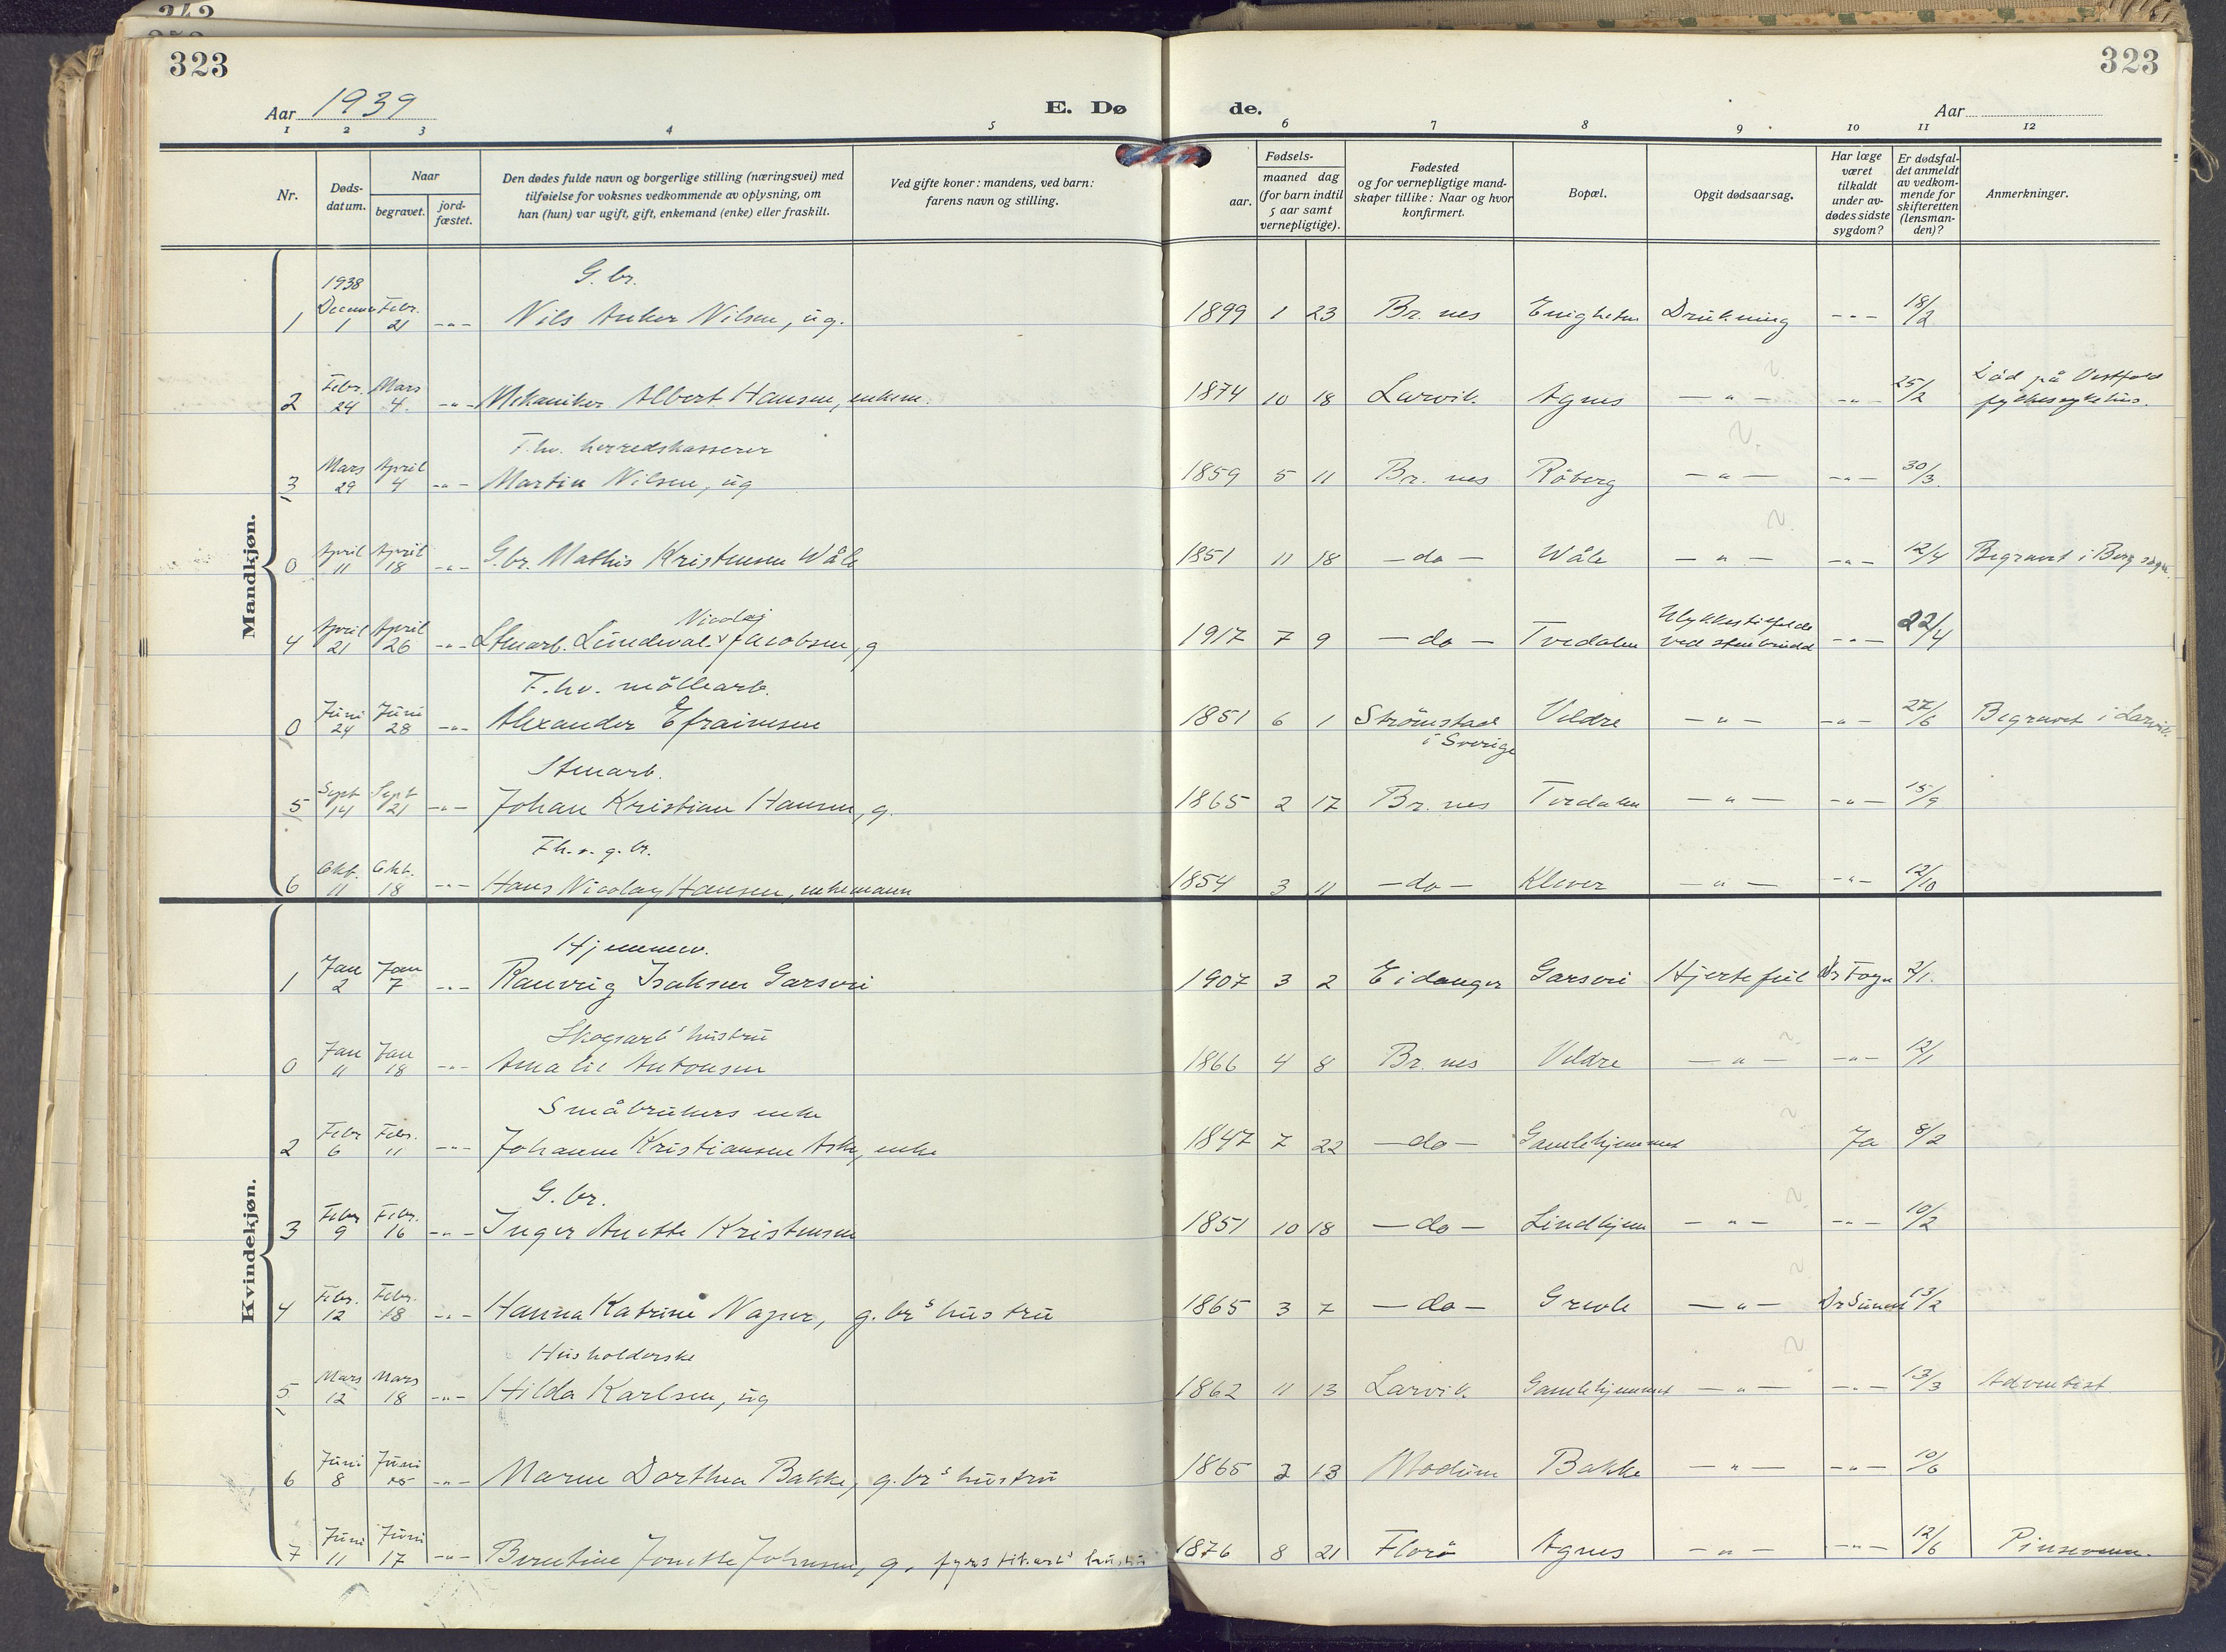 342
323
323
Aar 1939
E. Dø
de.
Aar
1 2 3 4 5 6 7 8 9 10 11 12
Nr.
Døds-
datum.
Naar
begravet.
jord-
fæstet.
Den dødes fulde navn og borgerlige stilling (næringsvei) med
tilføielse for voksnes vedkommende av oplysning, om
han (hun) var ugift, gift, enkemand (enke) eller fraskilt.
Ved gifte koner: mandens, ved barn:
farens navn og stilling.
Fødsels-
aar.
maaned dag
(for barn indtil
5 aar samt
vernepligtige).
Fødested
og for vernepligtige mand-
skaper tillike: Naar og hvor
konfirmert.
Bopæl.
Opgit dødsaarsag.
Har læge
været
tilkaldt
under av-
dødes sidste
sygdom?
Er dødsfal-
det anmeldt
av vedkom-
mende for
skifteretten
(lensman-
den)?
Anmerkninger.
Mandkjøn.
1938
G. br.
1 Decem 1 Febr. 21 -"- Nils Anker Nilsen, ug. 1899 1 23 Br. nes Enigheten Drukning -"- 18/2
2 Febr. 24 Mars 4 -"- Mekaniker Albert Hansen, enkem. 1874 10 18 Larvik Agnes -"- -"- 25/2 Død på Vestfold
fylkessykehus.
F. hv. herredskasserer
3 Mars 29 April 4 -"- Martin Nilsen, ug 1859 5 11 Br. nes Råberg -"- -"- 30/3.
0 April 11 April 18 -"- G. br. Mathis Kristensen Wåle 1851 11 18 -do- Wåle -"- -"- 12/4 Begravet i Berg sogn.
Nicolaj
Ulykkestilfelde
4 April 21 April 26 -"- Stenarb. Lundeval v Jacobsen, g 1917 7 9 -do- Tvedalen ved stenbrudd -"- 22/4
F. hv. möllearb.
0 Juni 24 Juni 28 -"- Alexander Efraimsen 1851 6 1 Strömstad Veldre -"- -"- 27/6 Begravet i Larvik.
i Sverige
Stenarb.
5 Sept 14 Sept 21 -"- Johan Kristian Hansen, g. 1865 2 17 Br. nes Tvedalen -"- -"- 15/9
Fh.v. g. br.
6 Okt. 11 Okt. 18 -"- Hans Nicolay Hansen, enkemann 1854 3 11 -do- Klever -"- -"- 12/10
Kvindekjøn.
Hjemmev.
1 Jan 2 Jan 7 -"- Ranveig Isaksen Garsvei 1907 3 2 Eidanger Garsvei Hjertefeil Dr Fogn 3/1.
Skogsarbs hustru
0 Jan 11 Jan 18 -"- Amalie Antonsen 1866 4 8 Br. nes Veldre -"- -"- 12/1
Småbrukers enke
2 Febr 6 Febr. 11 -"- Johanne Kristiansen Ask, enke 1847 7 22 -do- Gamlehjemmet Ja 8/2
G. br.
3 Febr 9 Febr. 16 -"- Inger Anette Kristensen 1851 10 18 -do- Lindhjem -"- -"- 10/2
4 Febr. 12 Febr. 18 -"- Hanna Katrine Naper, g. brs hustru 1865 3 7 -do- Grevle -"- 13/2
Husholderske
5 Mars 12 Mars 18 -"- Hilda Karlsen, ug 1862 11 13 Larvik Gamlehjemmet -"- -"- 13/3 Adventist
6 Juni 8 Juni 15 -"- Maren Dorthea Bakke, g. brs hustru 1865 2 13 Modum Bakke -"- -"- 10/6
7 Juni 11 Juni 17 -"- Berntine Jonette Johnsen, g. fyrstikarbs hustru 1876 8 21 Florö Agnes -"- -"- 12/6 Pinsevenn.